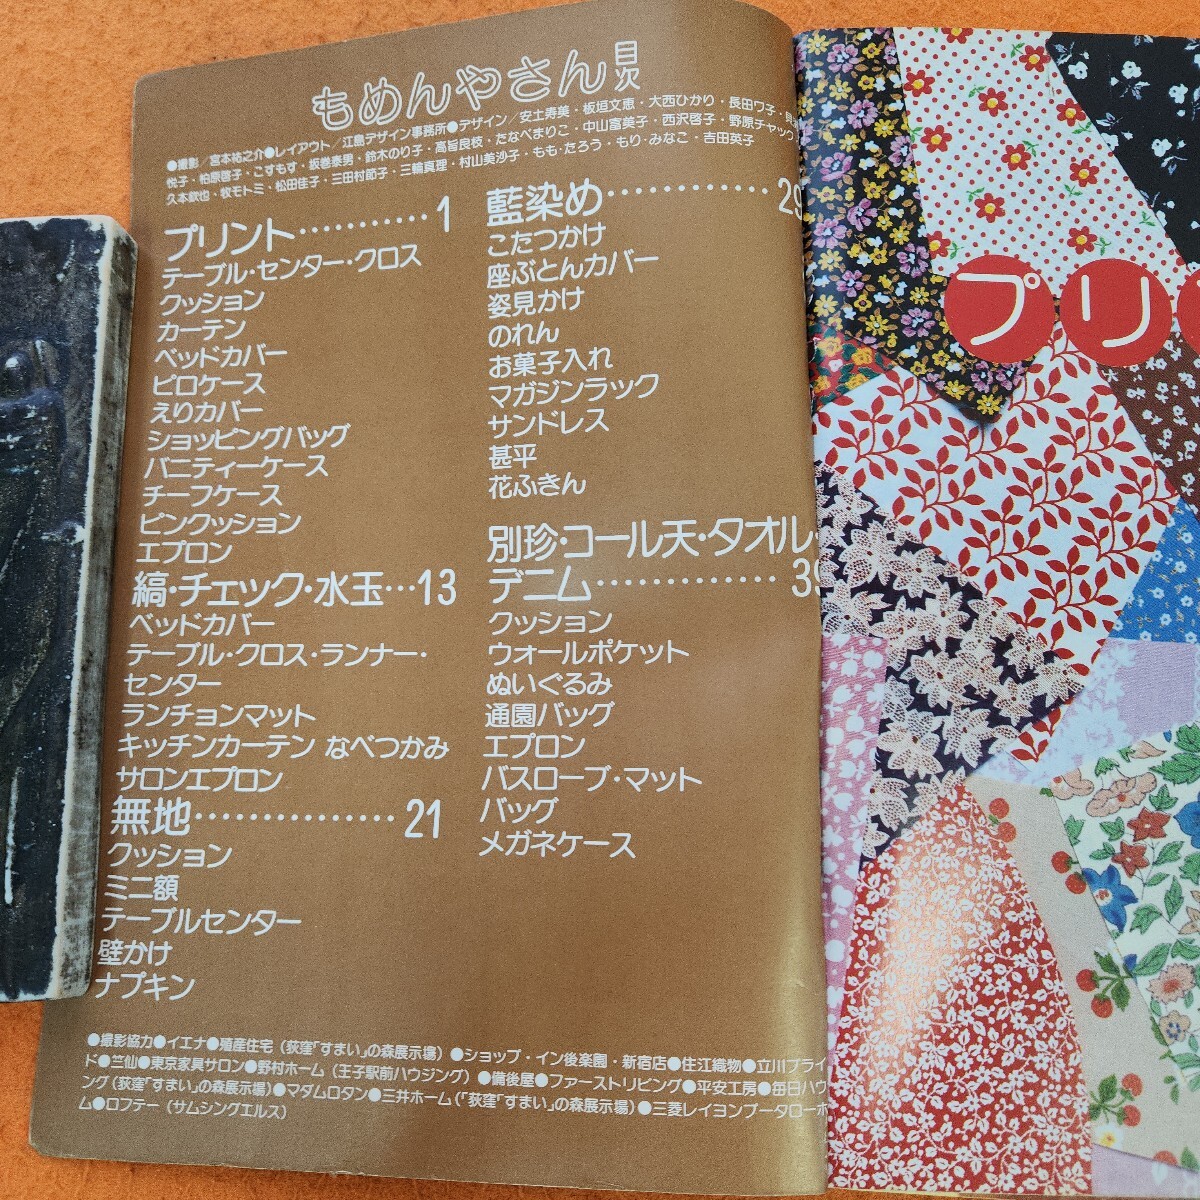 もめんやさん目次
●撮影/宮本祐之介●レイアウト/江島デザイン事務所●デザイン/安土寿美・板垣文恵・大西ひかり・長田ワ子・
悦子・柏原啓子・こすもす・坂巻泰男・鈴木のり子・高旨良枝・たなべまりこ・中山富美子・西沢啓子・野原チャック
久本欽也・牧モトミ・松田佳子・三田村節子・三輪真理・村山美沙子・もも・たろう・もり・みなこ・吉田英子
プリント………1
テーブル・センター・クロス
クッション
カーテン
ベッドカバー
ピロケース
えりカバー
ショッピングバッグ
バニティーケース
チーフケース
ピンクッション
エプロン
縞・チェック・水玉…13
ベッドカバー
テーブル・クロス・ランナー・
センター
ランチョンマット
キッチンカーテン なべつかみ
サロンエプロン
無地……………21
クッション
ミニ額
テーブルセンター
壁かけ
ナプキン
藍染め…………29
こたつかけ
座ぶとんカバー
姿見かけ
のれん
お菓子入れ
マガジンラック
サンドレス
甚平
花ふきん
別珍・コール天・タオル・
デニム…………39
クッション
ウォールポケット
ぬいぐるみ
通園バッグ
エプロン
バスローブ・マット
バッグ
メガネケース
●撮影協力●イエナ●殖産住宅(荻窪「すまい」の森展示場)●ショップ・イン後楽園・新宿店●住江織物●立川ブライ
ド●竺仙●東京家具サロン●野村ホーム(王子駅前ハウジング)●備後屋●ファーストリビング●平安工房●毎日ハウ
ング(荻窪「すまい」の森展示場)●マダムロタン●三井ホーム(「荻窪「すまい」の森展示場)●三菱レイヨンブータローホ
ム●ロフテー(サムシングエルス)
プリ